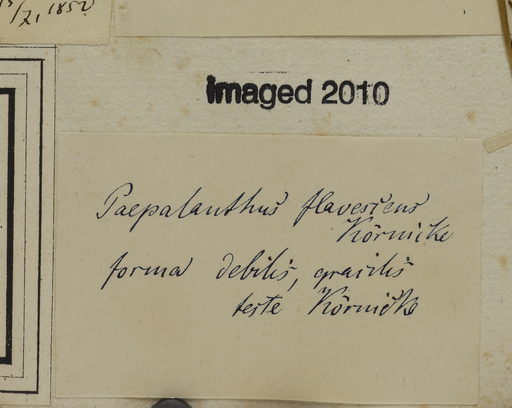 /Z, 1852
imaged 2010
Paepalanthus flavescens
Körnicke
forma debilis, gracilis
teste Körnicke